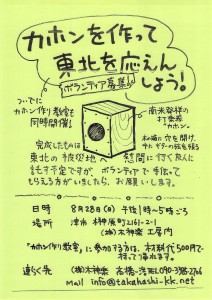 カホンを作って
東北を応えん
しよう!
ボランティア募集!
ついでに
カホン作り教室も
同時開催!
南米発祥の
打楽器
"カホン"
木の箱に穴を開け、
ギターの弦を張る
完成したものは
東北の被災地へ慰問に行く友人に
託す予定ですが、ボランティアで作って
もらえる方がいましたら、お願いします。
日時 8月28日(日) 午後1時~5時ごろ
場所 津市 木神原町2161-21
(株)木神楽 工房内
「カホン作り教室」に参加する方は、材料代500円で
作って帰れます。
連らく先 (株)木神楽 高橋
mail info@takahashi-kk.net